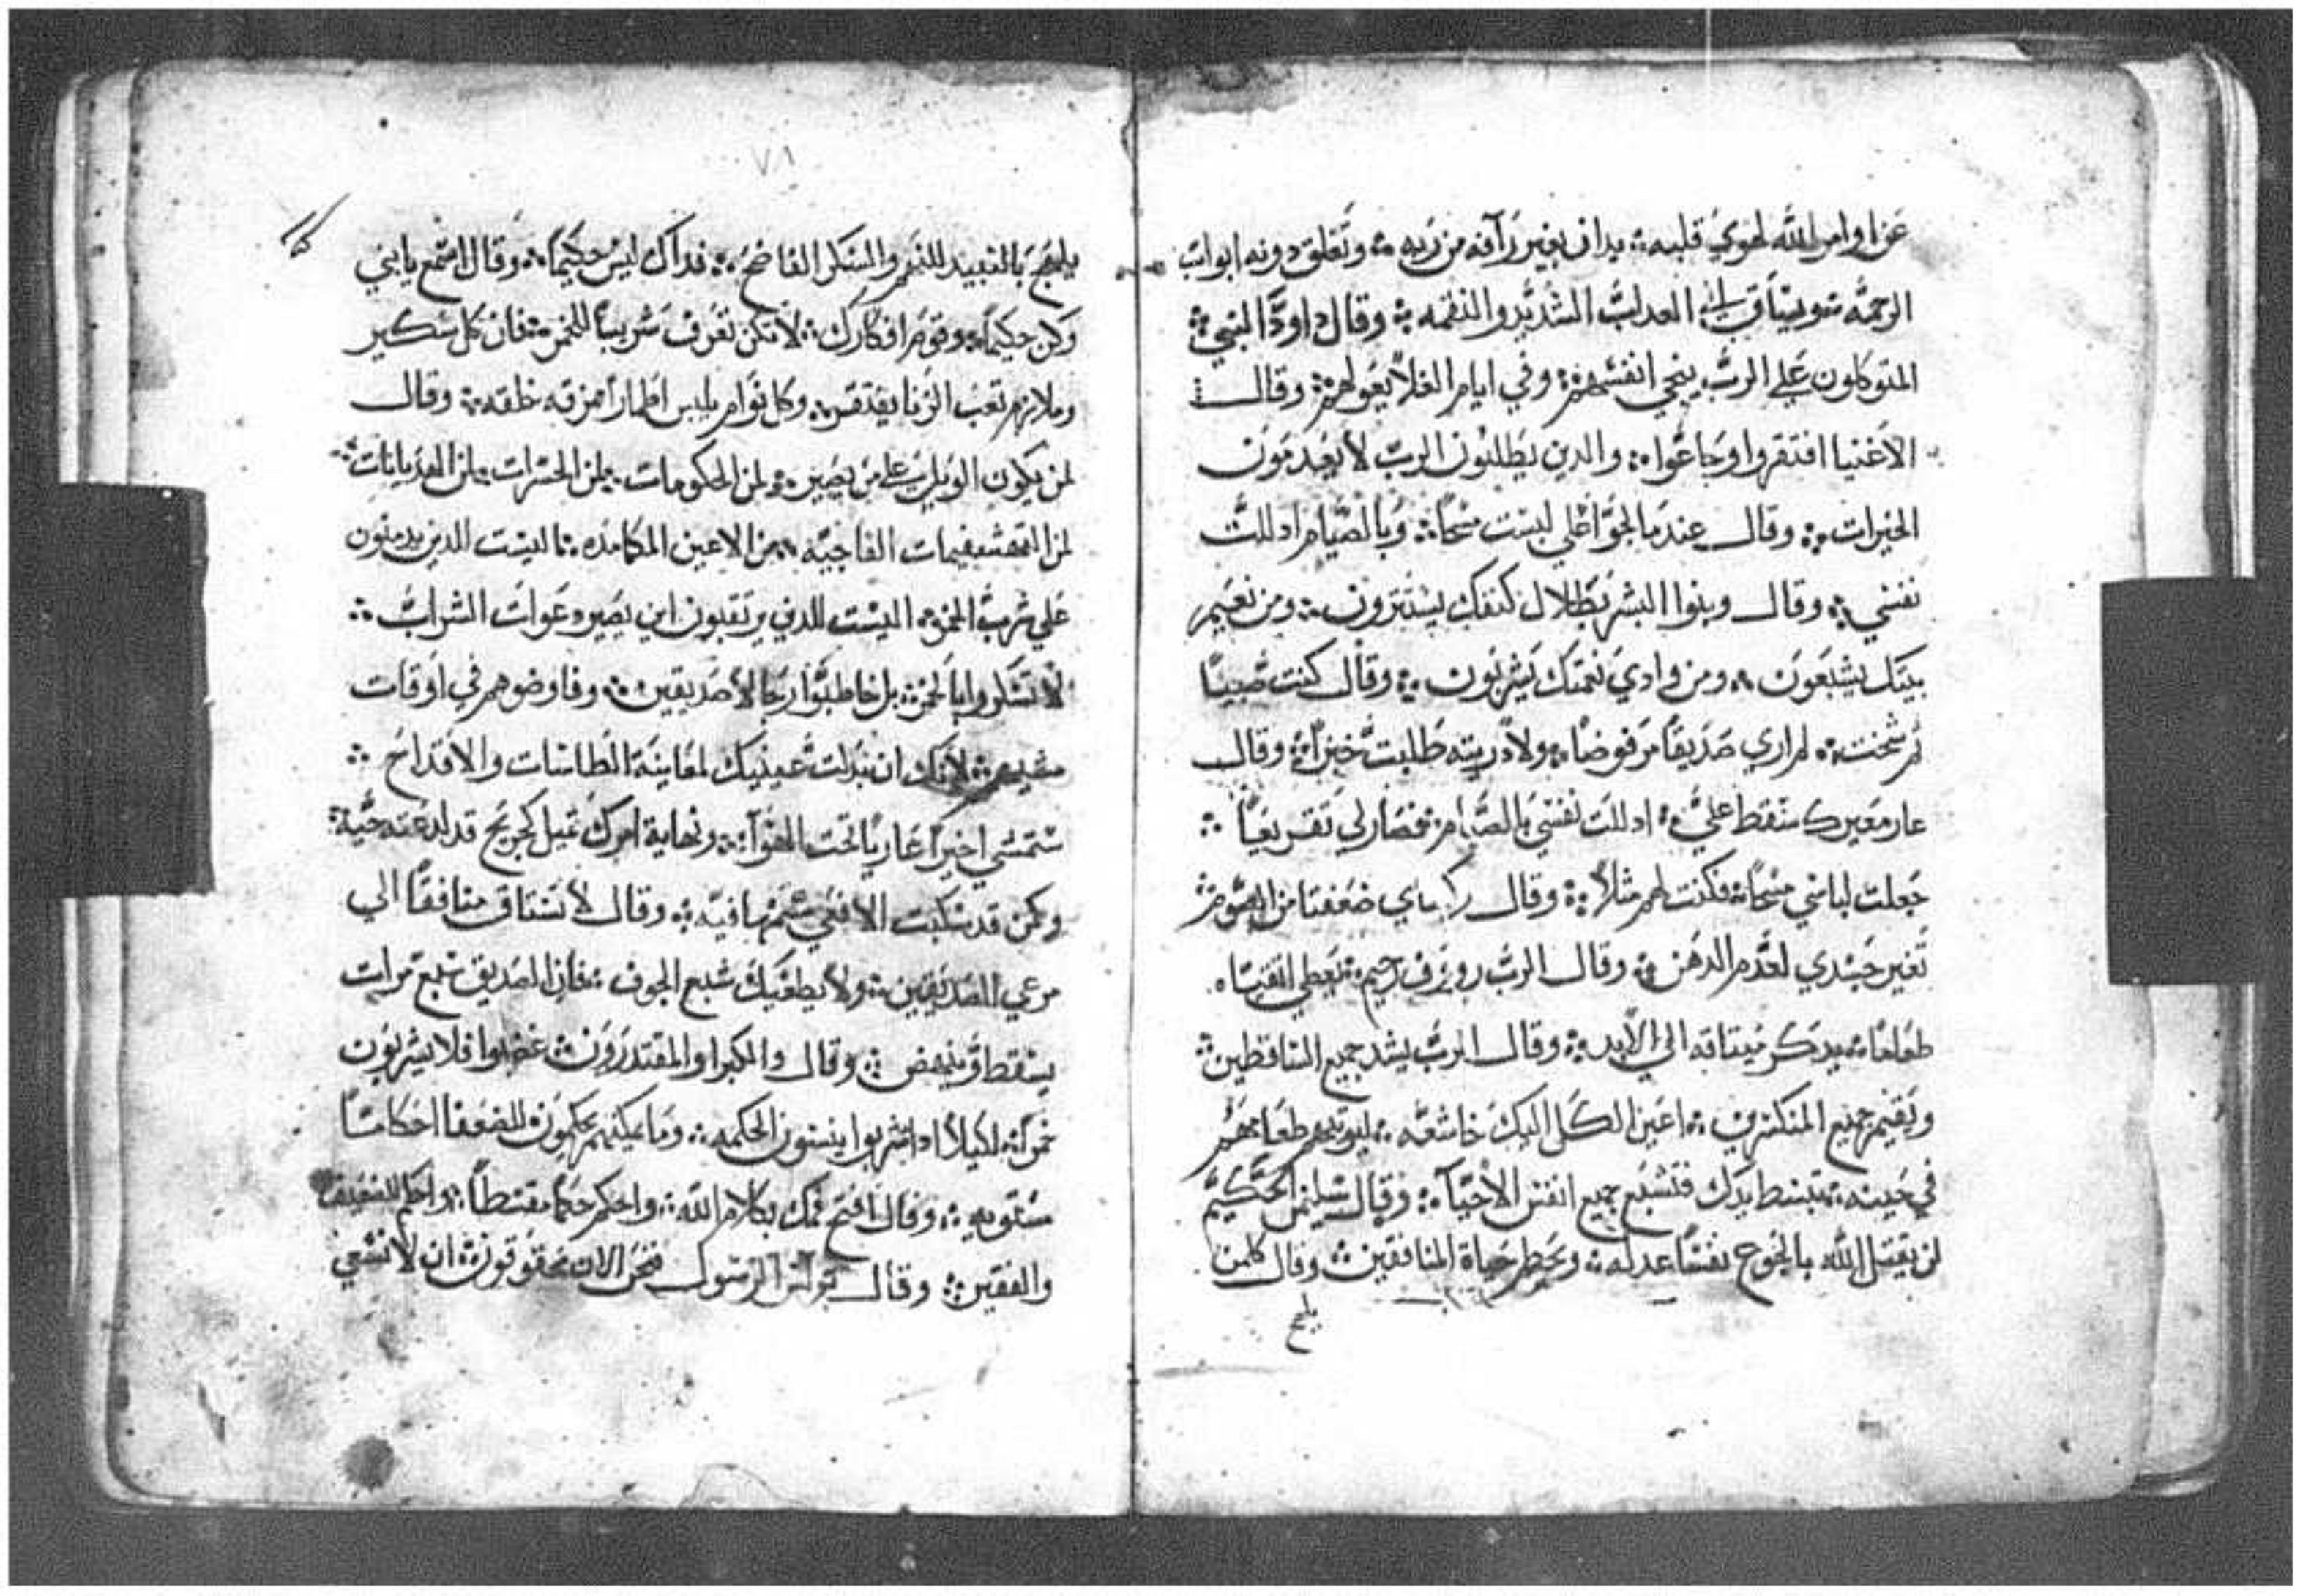 عن اوامر الله لهوي قلبه ؞ يدان بغير رآفه من ربه ؞ وتغلق دونه ابواب
الرحمه العداب الشديد والنقمه ؞ وقال داود النبي ؞
المتوكلون علي الرب ينجي انفسهم ؞ وفي ايام الغلا يعولهم ؞ وقال
الاغنيا افتقروا وجاعوا ؞ والدين يطلبون الرب لا يعدمون
الخيرات ؞ وقال عندما لجوا علي لبست مسحًا ؞ وبالصيام اذللت
نفسي ؞ وقال وبنوا البشر بظلال كنفك يستترون ؞ ومن نعيم
بيتك يشبعون ؞ ومن وادي نعمتك يشربون ؞ وقال كنت صبيًا
ثم شخت ؞ لم اري صديقًا مرفوضًا ؞ ولا دريته طلبت خبزًا ؞ وقال
عار معيريك سقط علي ؞ اذللت نفسي بالصيام فصار لي تقريعًا ؞
جعلت لباسي مسحًا ؞ فكنت لهم مثلًا ؞ وقال ركبتاي ضعفتا من الصوم ؞
تغير جسدي لعدم الدهن ؞ وقال الرب رووف رحيم ؞ يعطي اتقياه
طعامًا ؞ يدكر ميتاقه الي الابد ؞ وقال الرب يشدد جميع الساقطين ؞
ويقيم جميع المنكسرين ؞ اعين الكل اليك خاشعه ؞ ليوتيهم طعامهم
في حينه ؞ تبسط يدك فتشبع جميع انفس الاحيآ ؞ وقال سليمن الحكيم
لن يقتل الله بالجوع نفسًا عدله ؞ ويحطم حياة المنافقين ؞ وقال كلمن
يلهج
٧٨
يلهج بالنبيد للخمر والسكر الفاضح ؞ فداك ليس حكيمًا ؞ وقال استمع يا بني
وكن حكيمًا ؞ وقوم افكارك ؞ لا تكن تعرف شريبًا للخمر ؞ فان كل سكير
وملازم تعب الزنا يفتقر ؞ وكل نوام يلبس اطمارًا مزقه خلقه ؞ وقال
لمن يكون الويل علي من يصير ؞ لمن الحكومات ؞ لمن الحسرات ؞ لمن الهديانات ؞
لمن التهشيمات الفاجيه ؞ لمن الاعين المكامده ؞ اليست الدين يدمنون
علي شرب الخمر ؞ اليست للدين يرتقبون اين يصير دعوات الشراب ؞
لا تسكروا بالخمر ؞ بل خاطبوا رجالا صديقين ؞ وفاوضوهم في اوقات
مشيهم ؞ لانك ان بدلت عينيك لمعاينة الطاسات والاقداح ؞
ستمشي اخيرًا عاريًا تحت الهوآ ؞ ونهاية امرك تميل كجريح قد لدعته حية ؞
وكمن قد سكبت الافعي سمها فيه ؞ وقال لا تستاق منافقًا الي
مرعي الصديقين ؞ ولا يطغيك شبع الجوف ؞ فان الصديق سبع مرات
يسقط وينهض ؞ وقال والكبرا والمقتدرون ؞ غضبوا فلا يشربون
خمرًا ؞ لكيلا ادا شربوا ينسون الحكمه ؞ وما يمكنهم يحكمون للضعفا احكامًا
مستويه ؞ وقال افتح فمك بكلام الله ؞ واحكم حكمًا مقسطًا ؞ واحكم للضعيف
والفقير ؞ وقال بولس الرسول فنحن الان محقوقون ؞ ان لا نسعي